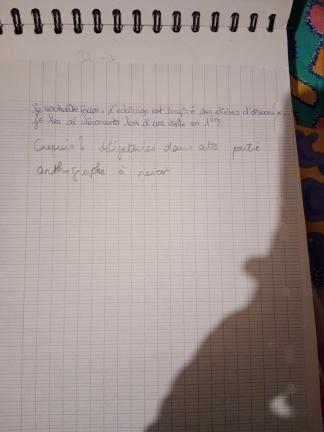 Je souhaite faire. L'éclairage est inspiré des
Je les ai découverts lors d'une visite en 1ère
Croquis! obligatoires dans cette partie
orthographe à revoir